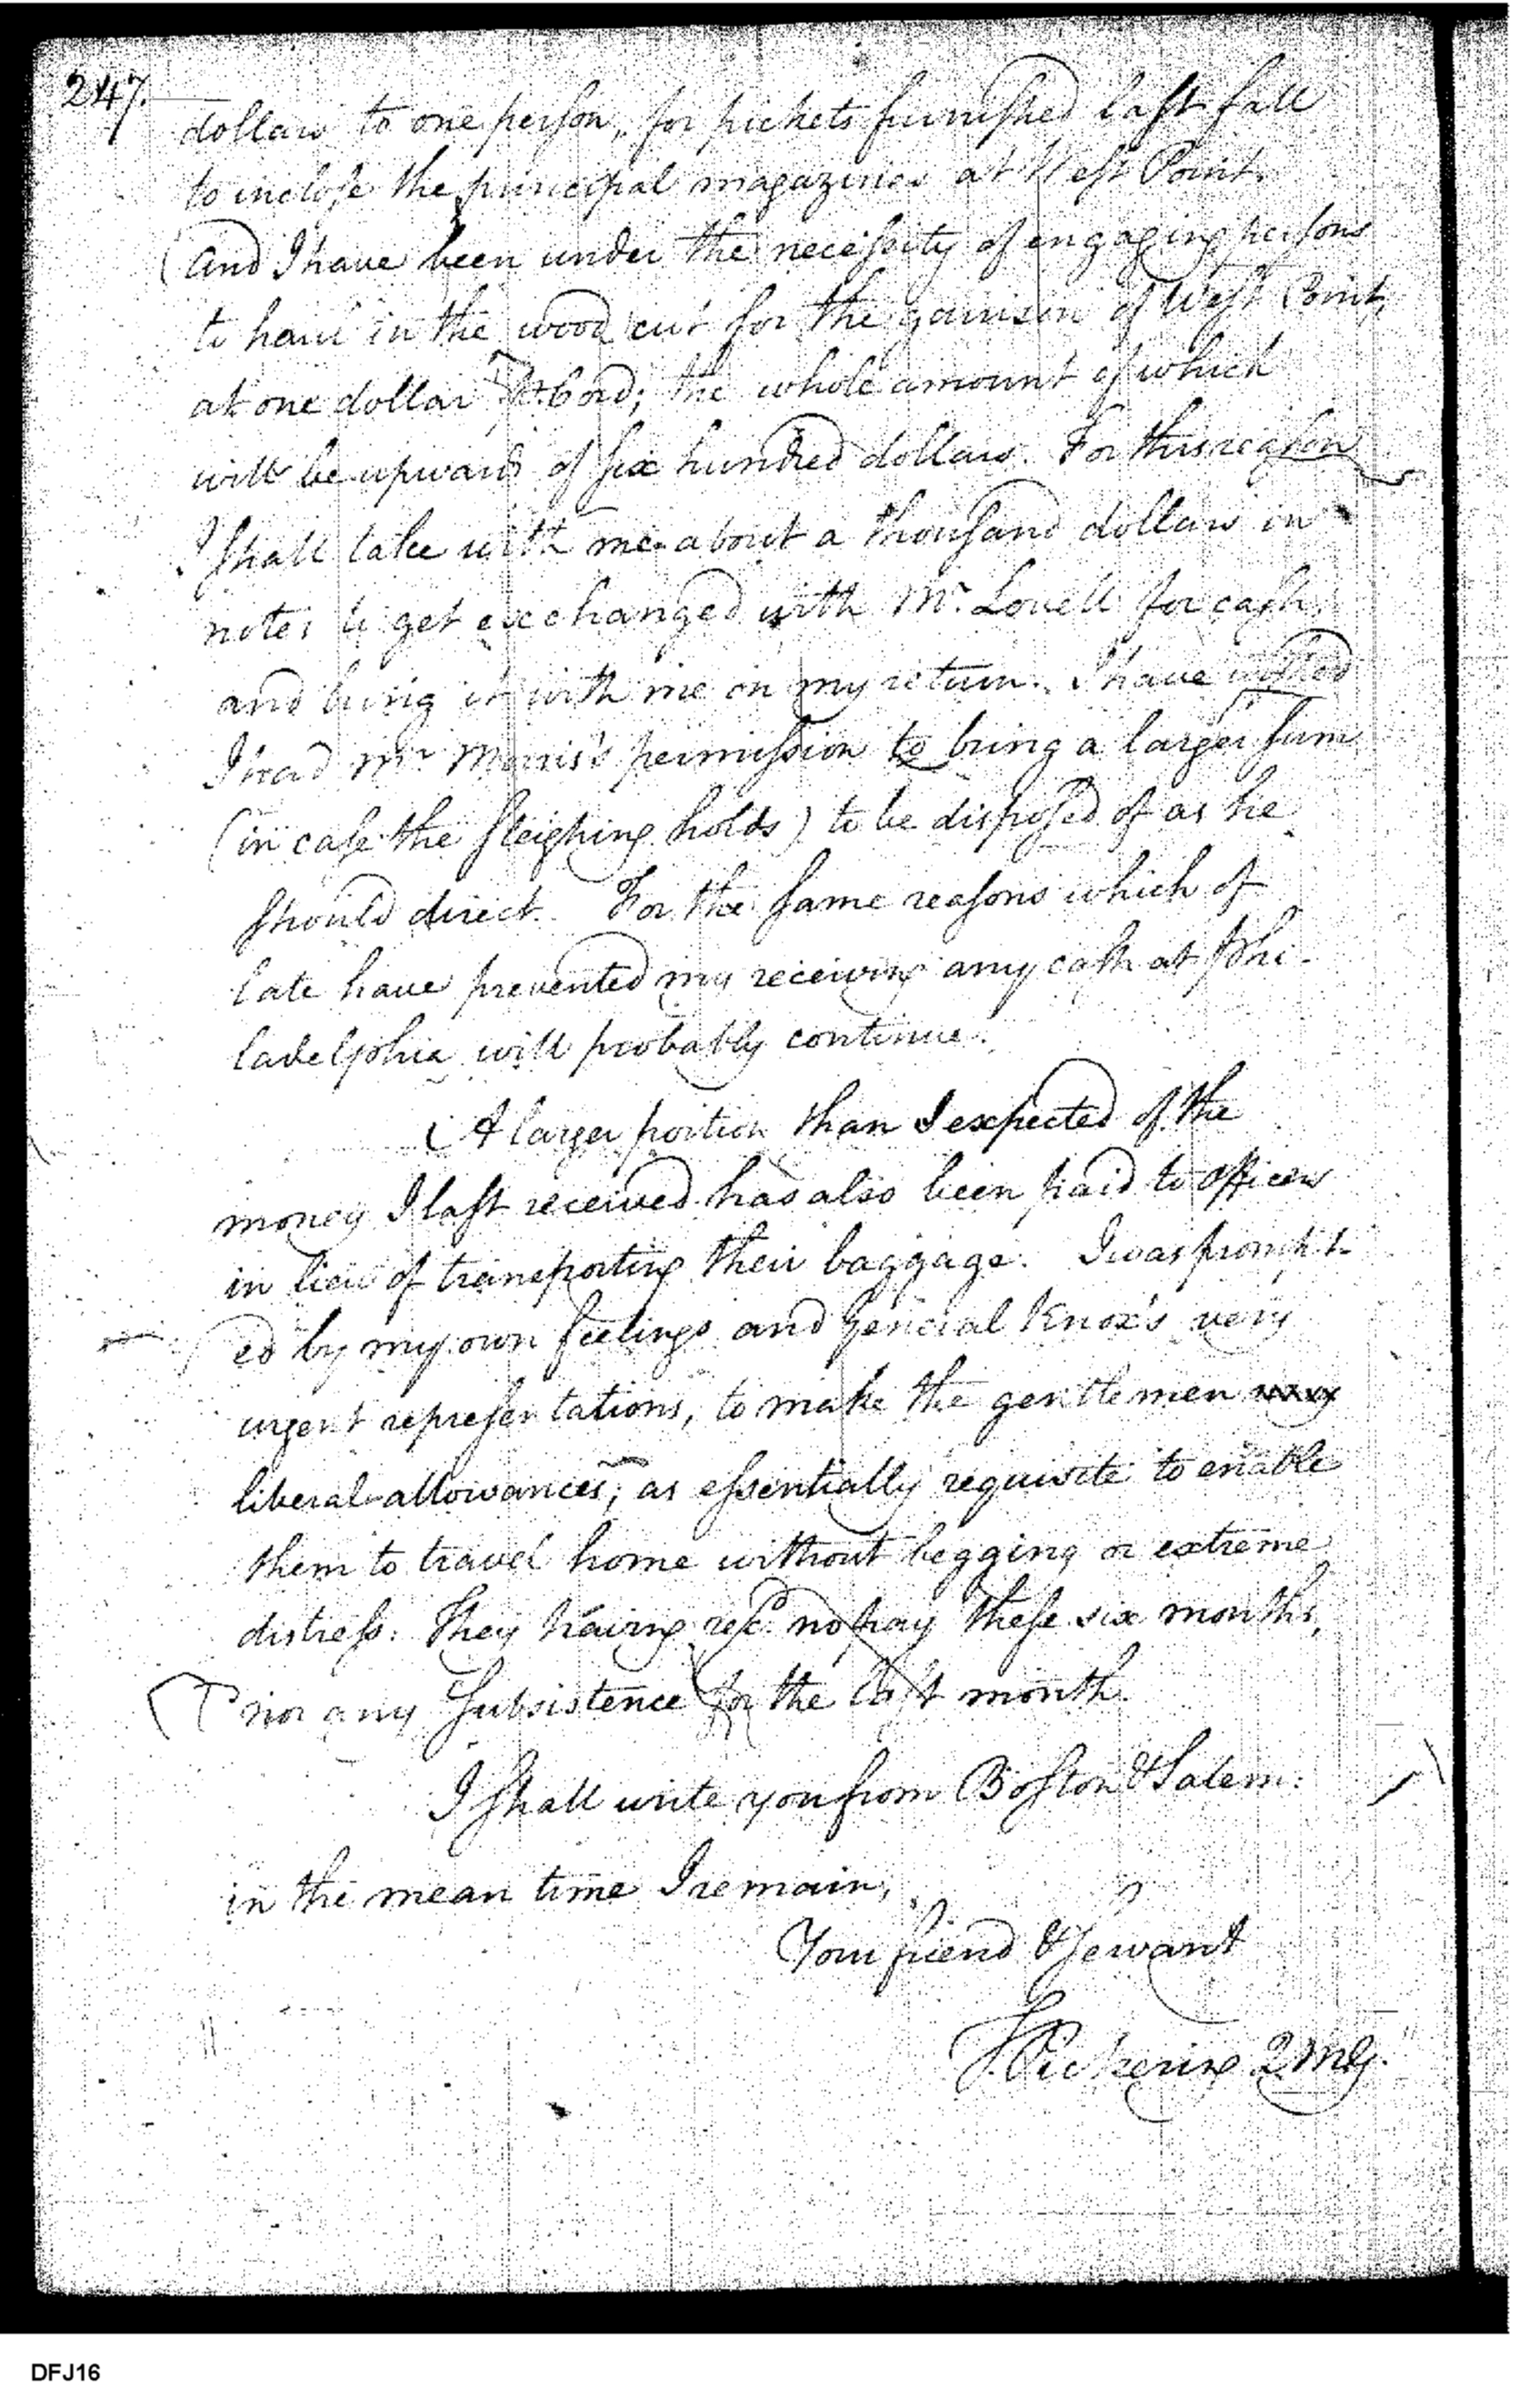 247.
dollars to one person, for pickets furnished last fall
to inclose the principal magazines at West Point.
And I have been under the necessity of engaging persons
to haul in the wood cut for the garrison of West Point,
at one dollar ⅌ Cord; the whole amount of which
will be upwards of six hundred dollars. For this reason
I shall take with me about a thousand dollars in
notes to get exchanged with Mr. Lovell for cash,
and bring it with me on my return. I have wished
I had Mr. Morris's permission to bring a larger sum
(in case the sleighing holds) to be disposed of as he
should direct. For the same reasons which of
late have prevented my receiving any cash at Phi-
ladelphia will probably continue.
A larger portion than I expected of the
money I last received has also been paid to officers
in lieu of transporting their baggage. I was prompt-
ed by my own feelings and General Knox's very
urgent representations, to make the gentlemen
liberal allowances, as essentially requisite to enable
them to travel home without begging or extreme
distress: They having recd. no pay these six months,
nor any Subsistence for the last month.
I shall write you from Boston & Salem:
in the mean time I remain,
Your friend & servant
T. Pickering QMG.
DFJ16